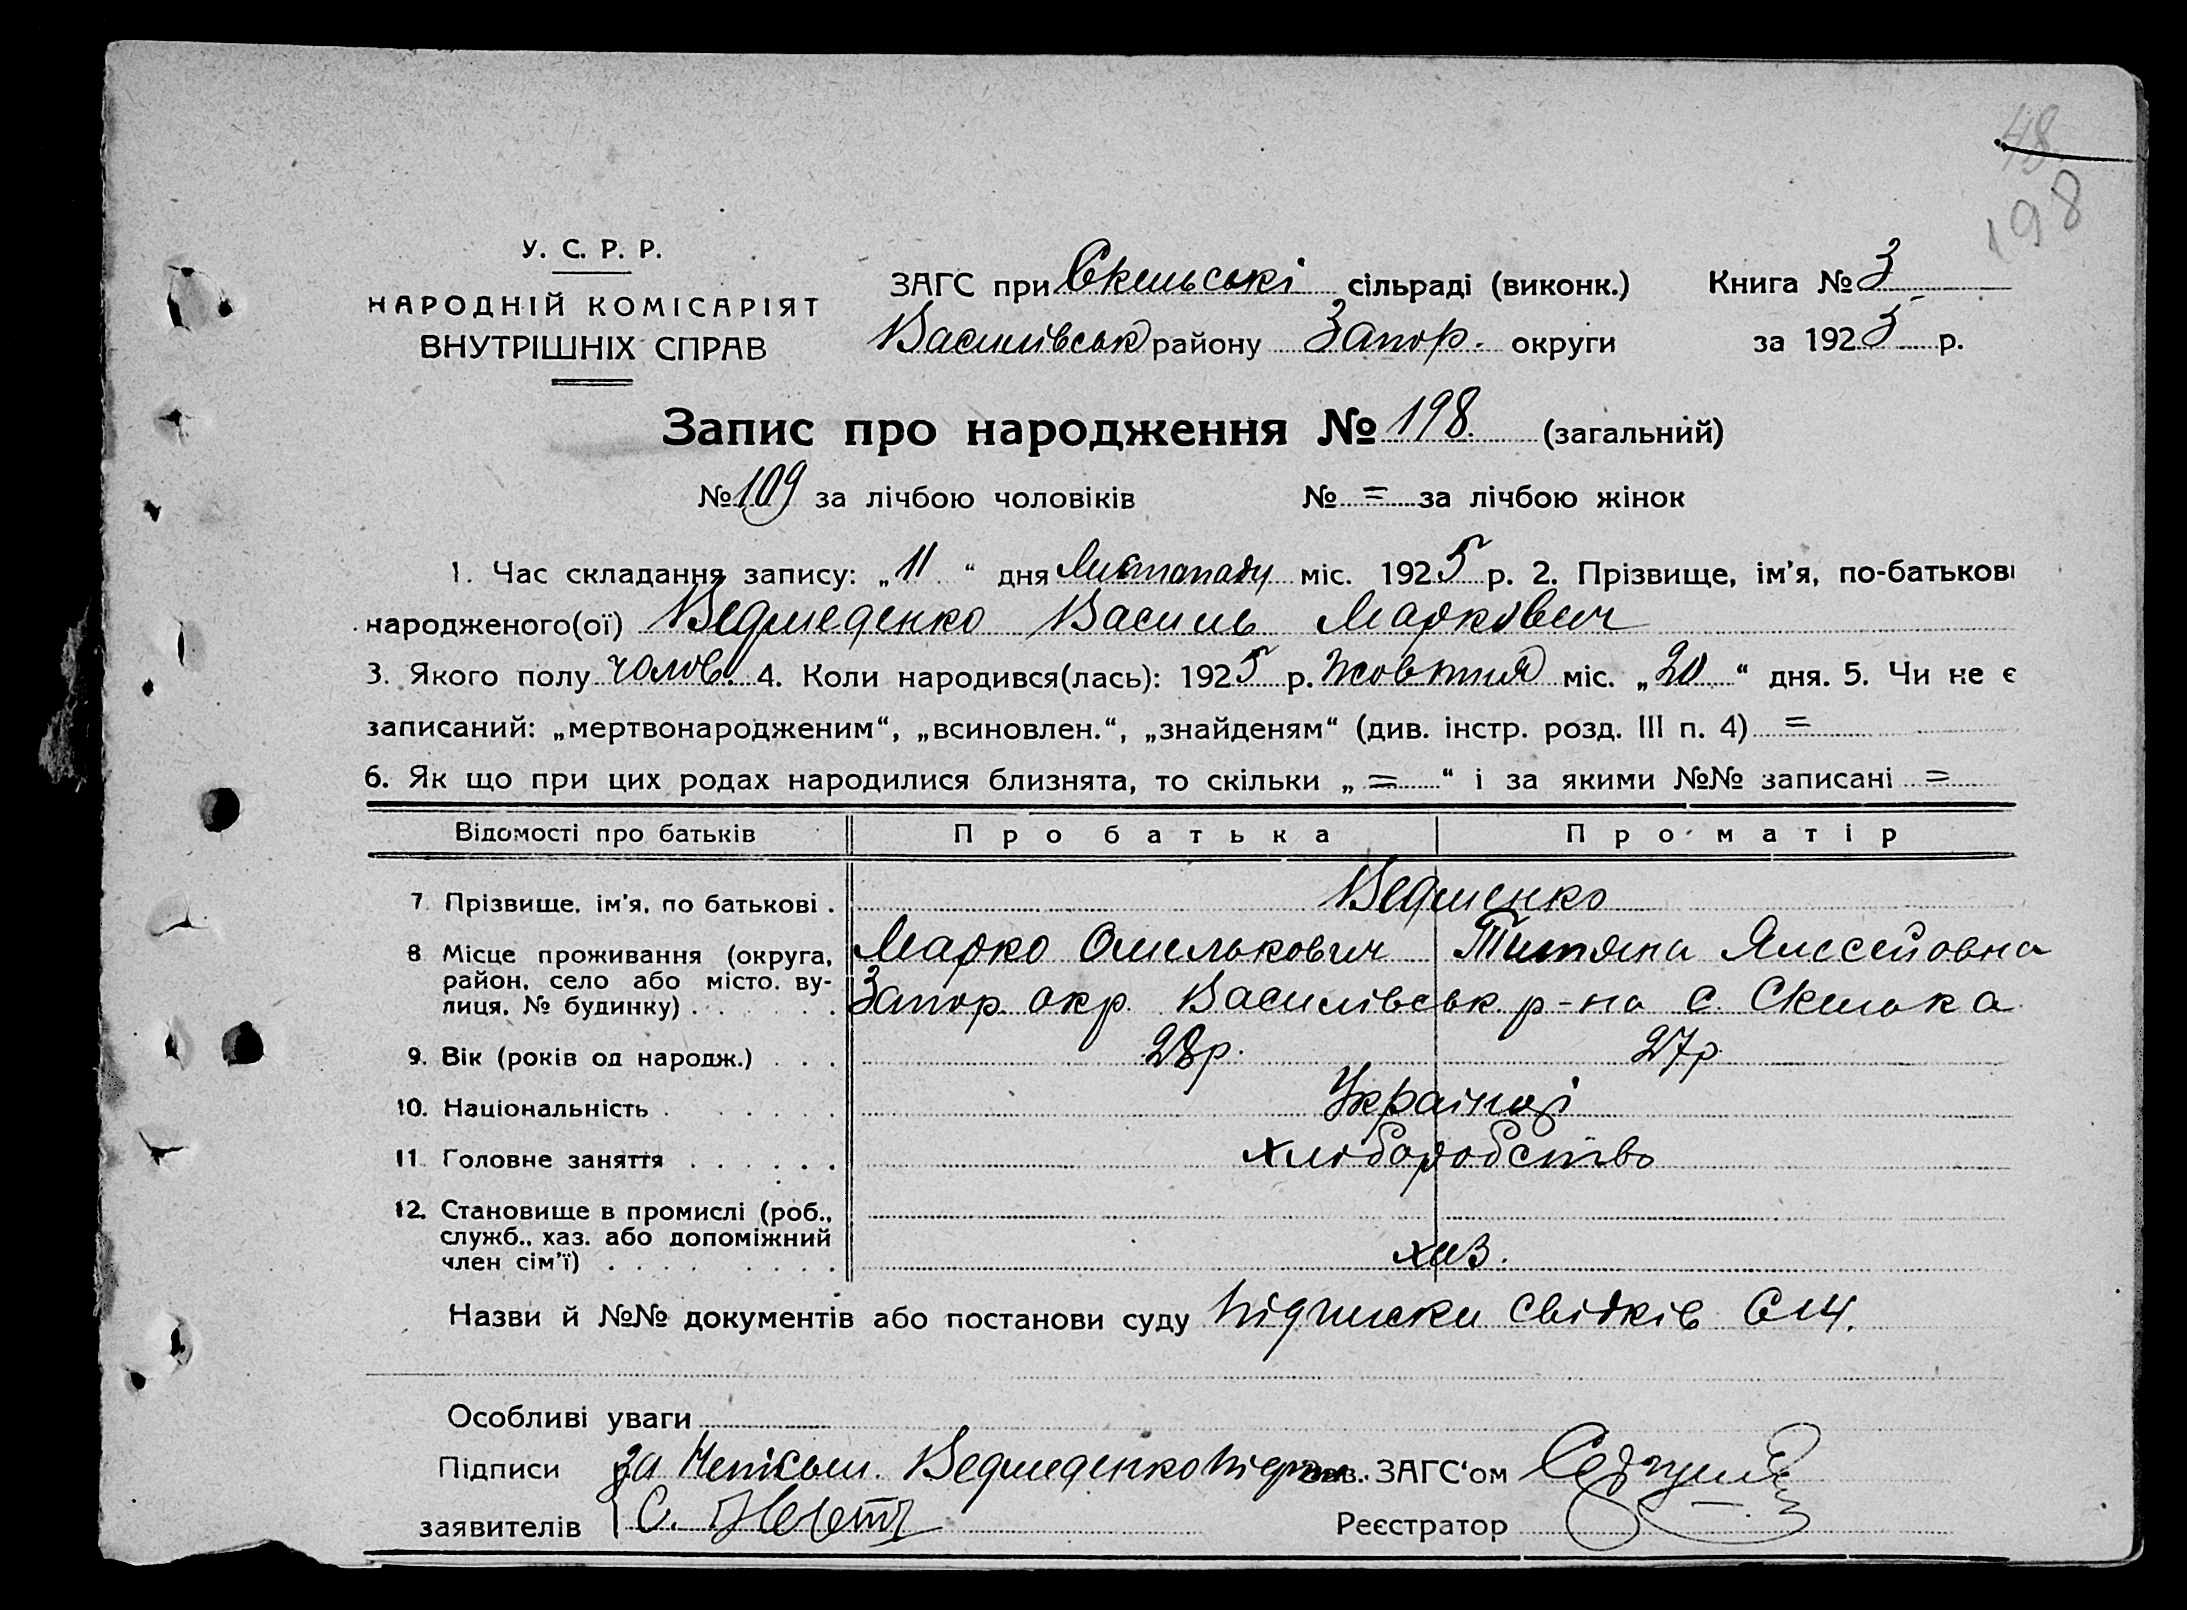 48
198
У. С. Р. Р.
НАРОДНІЙ КОМІСАРІЯТ
ВНУТРІШНІХ СПРАВ
ЗАГС при Скельські сільраді (виконк.) Книга № 3
Василівськ району Запор. округи за 1925 р.
Запис про народження № 198. (загальний)
№ 109 за лічбою чоловіків № = за лічбою жінок
1. Час складання запису: „11“ дня Листопаду міс. 1925 р. 2. Прізвище, ім'я, по-батькові
народженого(ої) Ведмеденко Василь Маркович
3. Якого полу чолов. 4. Коли народився(лась): 1925 р. Жовтня міс. „20“ дня. 5. Чи не є
записаний: „мертвонародженим“, „всиновлен.“, „знайденям“ (див. інстр. розд. III п. 4) =
6. Як що при цих родах народилися близнята, то скільки „=“ і за якими №№ записані =
Відомості про батьків Про батька Про матір
7 Прізвище, ім'я, по батькові . Ведменко
8 Місце проживання (округа, Марко Омелькович Титяна
район, село або місто, ву-
лиця, № будинку) . . . . . . Запор. окр. Василівськ р-на с. Скелька
9. Вік (років од народж.) . . . 28 р. 27 р
10. Національність . . . . . . . Україн
11 Головне заняття . . . . . . хліборобство
12. Становище в промислі (роб.,
служб., хаз. або допоміжний
член сім'ї) . . . . . . . . хаз.
Назви й №№ документів або постанови суду підписки свідків
Особливі уваги
Підписи за Ведмеденко Зав. ЗАГС'ом
заявителів С. Реєстратор